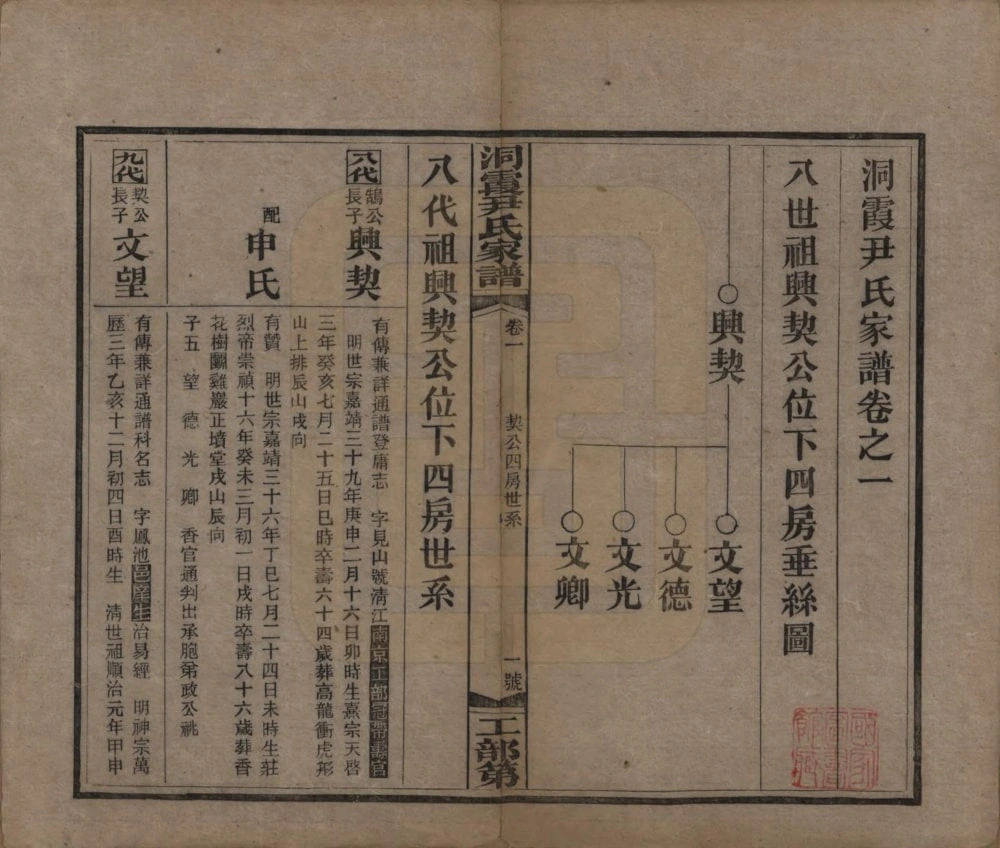 洞霞尹氏家譜卷之一
八世祖興契公位下四房垂絲圖
興契
文望
文德
文光
文卿
洞霞尹氏家譜
卷一
契公四房世系
一號
工部第
八代祖興契公位下四房世系
八代
鵠公
長子
興契
有傳兼詳通譜登庸志 字見山號清江南京工部冠帶壽官
明世宗嘉靖三十九年庚申二月十六日卯時生熹宗天啓
三年癸亥七月二十五日巳時卒壽六十四歲葬高龍衝虎形
山上排辰山戌向
配
申氏
有贊 明世宗嘉靖三十六年丁巳七月二十四日未時生莊
烈帝崇禎十六年癸未三月初一日戌時卒壽八十六歲葬香
花樹鬬雞巖正墳堂戌山辰向
子五 望 德 光 卿 香官通判出承胞弟政公祧
九代
契公
長子
文望
有傳兼詳通譜科名志 字鳳池邑庠生治易經 明神宗萬
歷三年乙亥十二月初四日酉時生 清世祖順治元年甲申